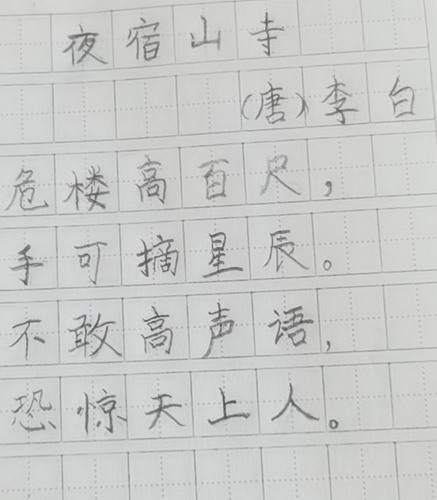 夜宿山寺
(唐)李白
危楼高百尺，
手可摘星辰。
不敢高声语，
恐惊天上人。